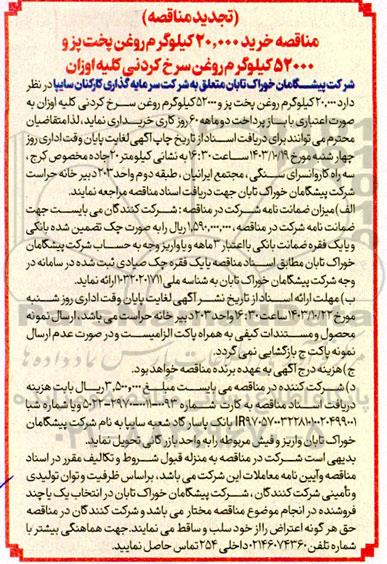 (تجدید مناقصه)
مناقصه خرید ۲۰,۰۰۰ کیلوگرم روغن پخت پز و
۵۲۰۰۰ کیلوگرم روغن سرخ کردنی کلیه اوزان
شرکت پیشگامان خوراک تابان متعلق به شرکت سرمایه گذاری کارکنان سایپا در نظر
دارد ۲۰,۰۰۰ کیلوگرم روغن پخت پز و ۵۲۰۰۰ کیلوگرم روغن سرخ کردنی کلیه اوزان به
صورت اعتباری با باز پرداخت دو ماهه ۶۰ روز کاری خریداری نماید، لذا متقاضیان
محترم می توانند برای دریافت اسناد از تاریخ چاپ آگهی لغایت پایان وقت اداری روز
چهار شنبه مورخ ۱۴۰۳/۱۰/۱۹ ساعت ۱۶:۳۰ به نشانی کیلومتر ۲۰ جاده مخصوص کرج،
سه راه کاروانسرای سنگی، مجتمع ایرانیان، طبقه دوم واحد ۲۰۳ دبیر خانه حراست
شرکت پیشگامان خوراک تابان جهت دریافت اسناد مناقصه مراجعه نمایند.
الف) میزان ضمانت نامه شرکت در مناقصه: شرکت کنندگان می بایست جهت
ضمانت نامه شرکت در مناقصه، ۱,۵۹۰,۰۰۰,۰۰۰ ریال را به صورت چک تضمین شده بانکی
و یا یک فقره ضمانت بانکی با اعتبار ۳ ماهه و یا واریز وجه به حساب شرکت پیشگامان
خوراک تابان مطابق اسناد مناقصه یا یک فقره چک صیادی ثبت شده در سامانه در
وجه شرکت پیشگامان خوراک تابان به شناسه ملی ۱۰۳۲۰۲۰۷۱۱ ارائه نماید.
ب) مهلت ارائه اسناد از تاریخ نشر آگهی لغایت پایان وقت اداری روز شنبه
مورخ ۱۴۰۳/۱۰/۲۲ ساعت ۱۶:۳۰ واحد ۲۰۳ دبیر خانه حراست می باشد، ارسال نمونه
محصول و مستندات کیفی به همراه پاکت الزامیست و در صورت عدم ارسال
نمونه پاکت ج بازگشایی نمی گردد.
ج) هزینه درج آگهی به عهده برنده مناقصه خواهد بود.
د) شرکت کننده در مناقصه می بایست مبلغ ۳,۵۰۰,۰۰۰ ریال بابت هزینه
دریافت اسناد مناقصه به کارت شماره و یا شماره شبا
بانک پاسارگاد شعبه سایپا به نام شرکت پیشگامان
خوراک تابان واریز و فیش مربوطه را به واحد بازرگانی تحویل نماید.
بدیهی است شرکت در مناقصه به منزله قبول شروط و تکالیف مقرر در اسناد
مناقصه و آیین نامه معاملات این شرکت می باشد، براساس ظرفیت و توان تولیدی
و تأمینی شرکت کنندگان، شرکت پیشگامان خوراک تابان در انتخاب یک یا چند
فروشنده در انجام موضوع مناقصه مختار می باشد و شرکت کنندگان در مناقصه
حق هر گونه اعتراض را از خود سلب و ساقط می نمایند. جهت هماهنگی بیشتر با
شماره تلفن ۰۲۱۴۶۰۷۴۳۶۰ داخلی ۲۵۴ تماس حاصل نمایید.